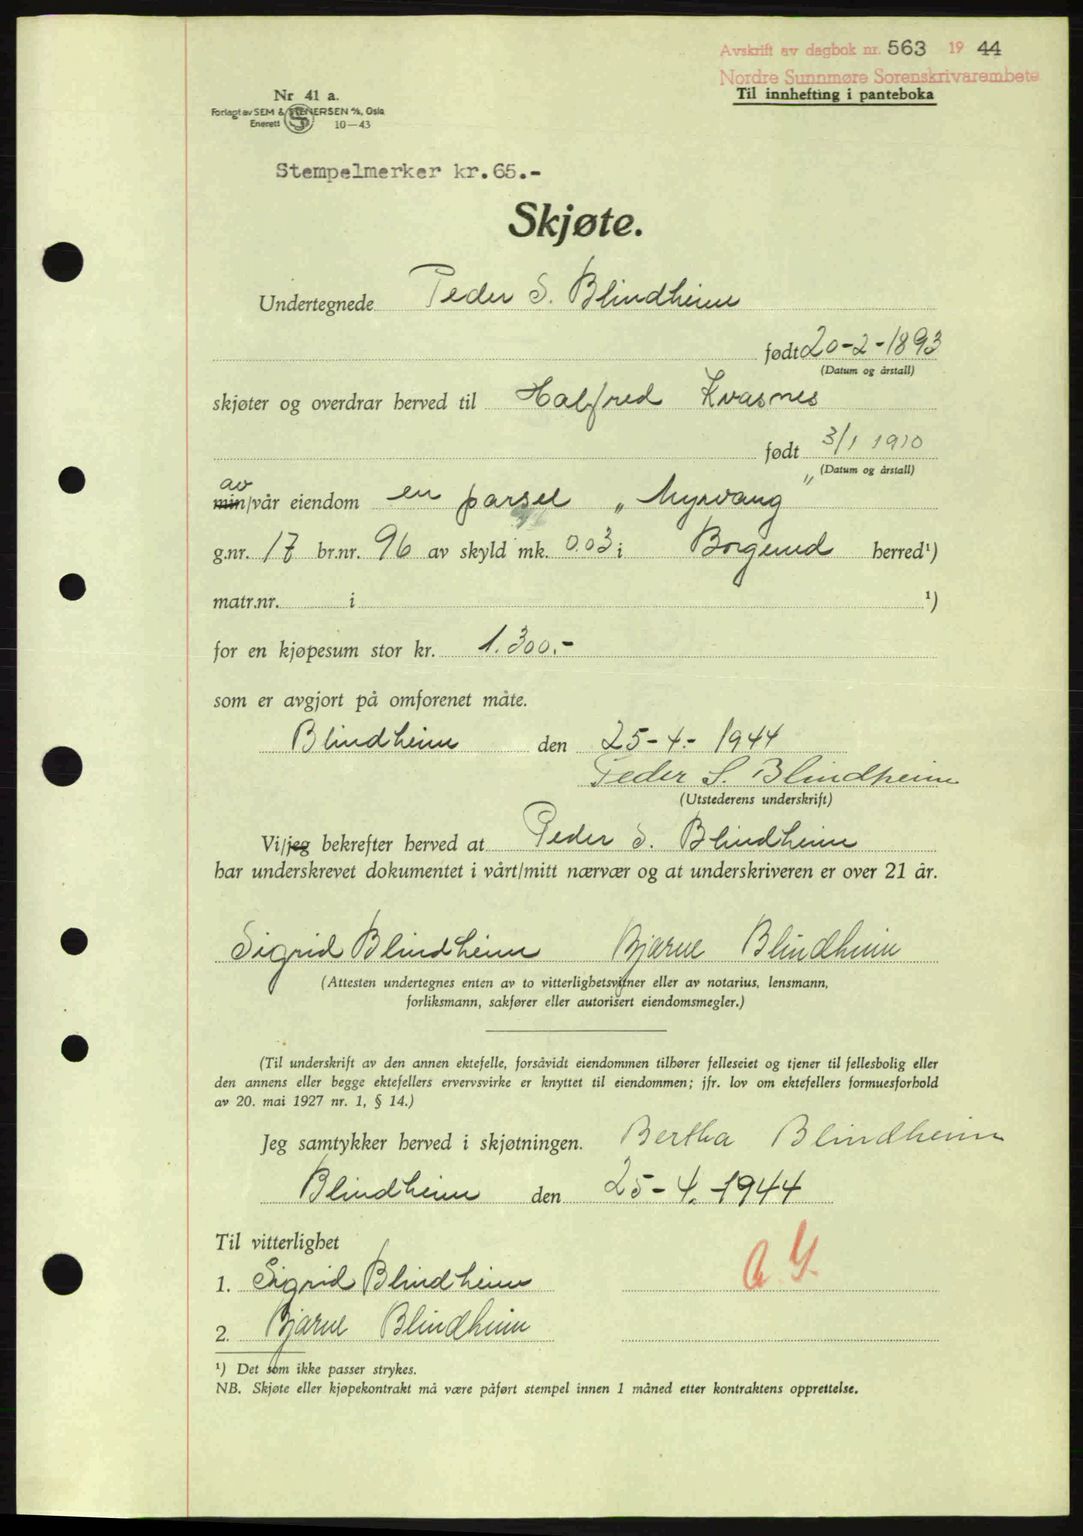 Avskrift av dagbok nr. 563 19 44
Nordre Sunnmøre Sorenskrivarembete
Til innhefting i panteboka
Nr 41 a.
Forlagt av SEM & STENERSEN A/S, Oslo
Enerett 10—43
Stempelmerker kr.65.-
Skjøte.
Undertegnede Peder S. Blindheim
født 20-2-1893
(Datum og årstall)
skjøter og overdrar herved til Halfred Kvasnes
født 3/1 1910
(Datum og årstall)
av
min/vår eiendom en parsel „Myrvang"
g.nr. 17 br.nr. 96 av skyld mk. 0.03 i Borgund herred¹)
matr.nr. i ¹)
for en kjøpesum stor kr. 1.300.-
som er avgjort på omforenet måte.
Blindheim den 25-4.- 1944
Peder S. Blindheim
(Utstederens underskrift)
Vi/jeg bekrefter herved at Peder S. Blindheim
har underskrevet dokumentet i vårt/mitt nærvær og at underskriveren er over 21 år.
Sigrid Blindheim Bjarne Blindheim
(Attesten undertegnes enten av to vitterlighetsvitner eller av notarius, lensmann,
forliksmann, sakfører eller autorisert eiendomsmegler.)
(Til underskrift av den annen ektefelle, forsåvidt eiendommen tilhører felleseiet og tjener til fellesbolig eller
den annens eller begge ektefellers ervervsvirke er knyttet til eiendommen; jfr. lov om ektefellers formuesforhold
av 20. mai 1927 nr. 1, § 14.)
Jeg samtykker herved i skjøtningen. Bertha Blindheim
Blindheim den 25-4.-1944
Til vitterlighet
1. Sigrid Blindheim
2. Bjarne Blindheim
¹) Det som ikke passer strykes.
NB. Skjøte eller kjøpekontrakt må være påført stempel innen 1 måned etter kontraktens opprettelse.